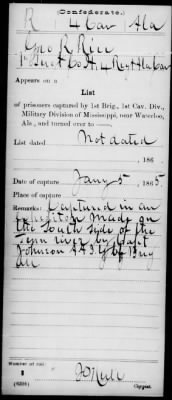 (Confederate.)
R 4 Cav Ala
Geo R Rice
Co H, 4 Regt Ala Cav
Appears on a
List
of prisoners captured by 1st Brig., 1st Cav. Div.,
Military Division of Mississippi, near Waterloo,
Ala., and turned over to
List dated Not dated
, 186
Date of capture Jany 5, 1865
Place of capture
Remarks: Captured in an
expedition made on
the South side of the
Tenn river by Capt
Johnson
Number of roll:
1
(639b) Copyist.